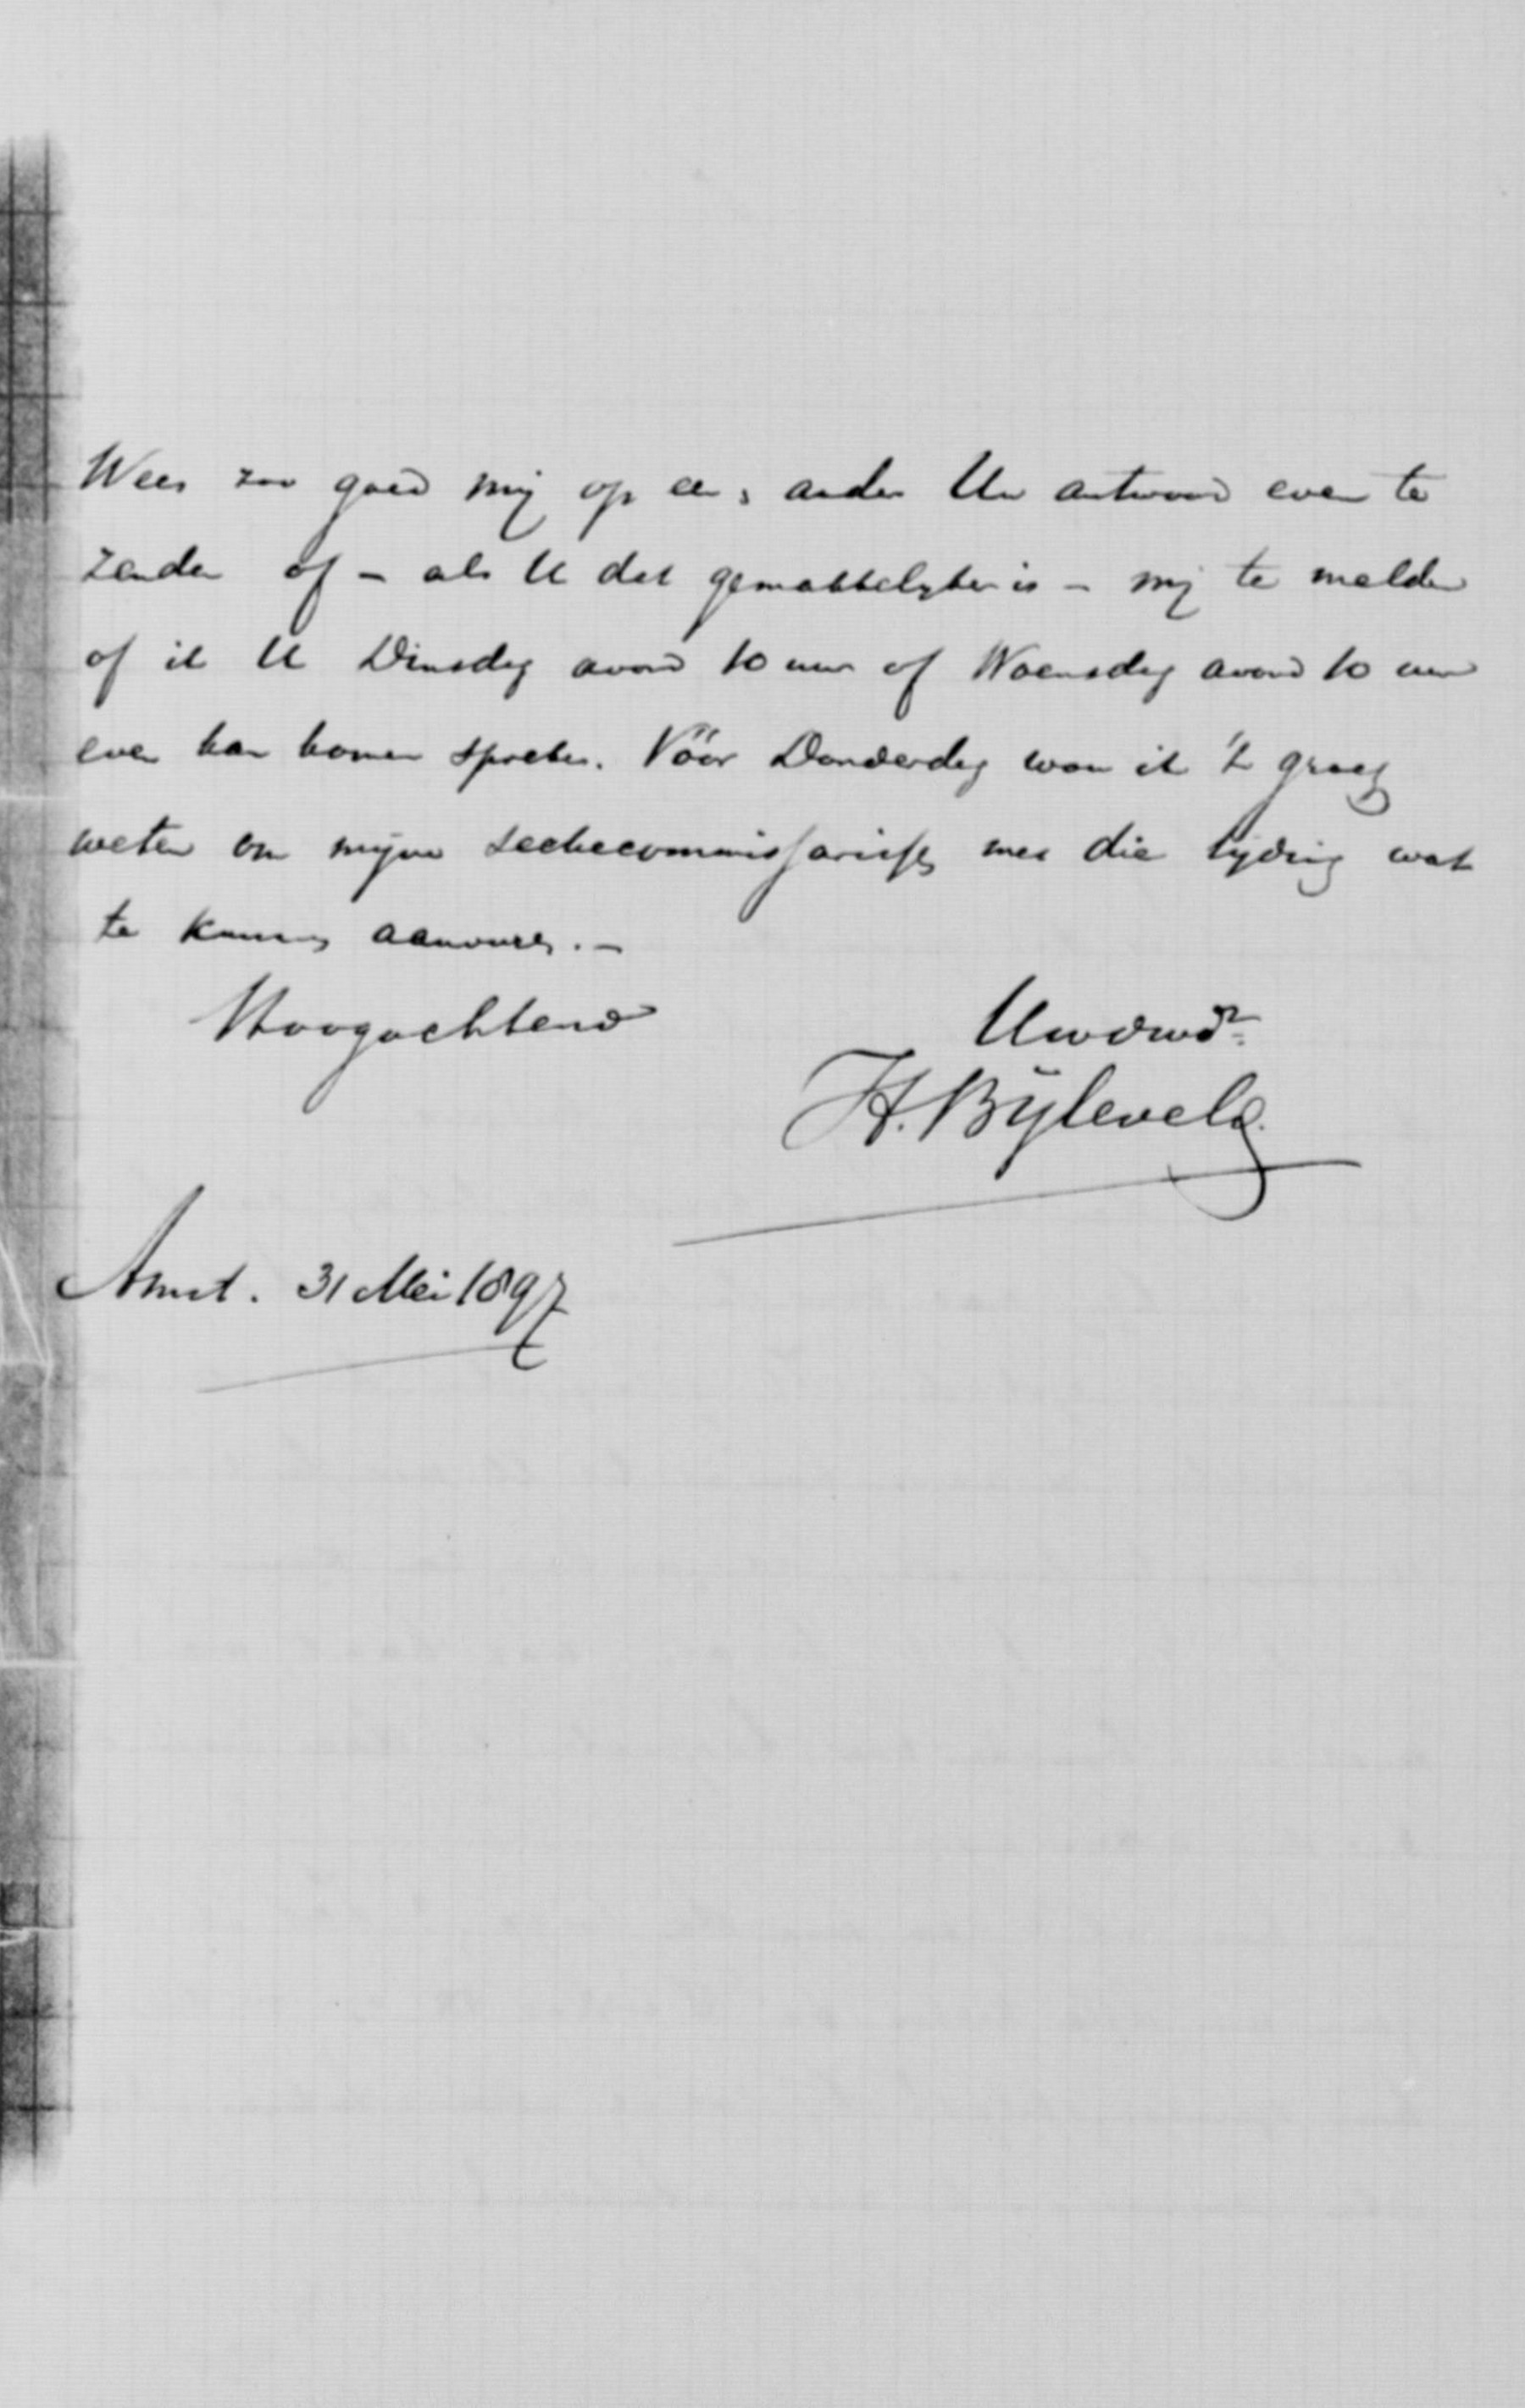 Wees zoo goed mij op een & ander Uw antwoord even te
zenden of – als U dat gemakkelijker is – mij te melden
of ik U Dinsdag avond 10 uur of Woensdag avond 10 uur
even kan komen spreken. Vóór Donderdag wou ik 't graag
weten om mijne sectiecommissarissen met die tijding wat
te kunnen aanvuren. –
Hoogachtend
Uwdwdr
H. Bijleveld.
Amst. 31 Mei 1897